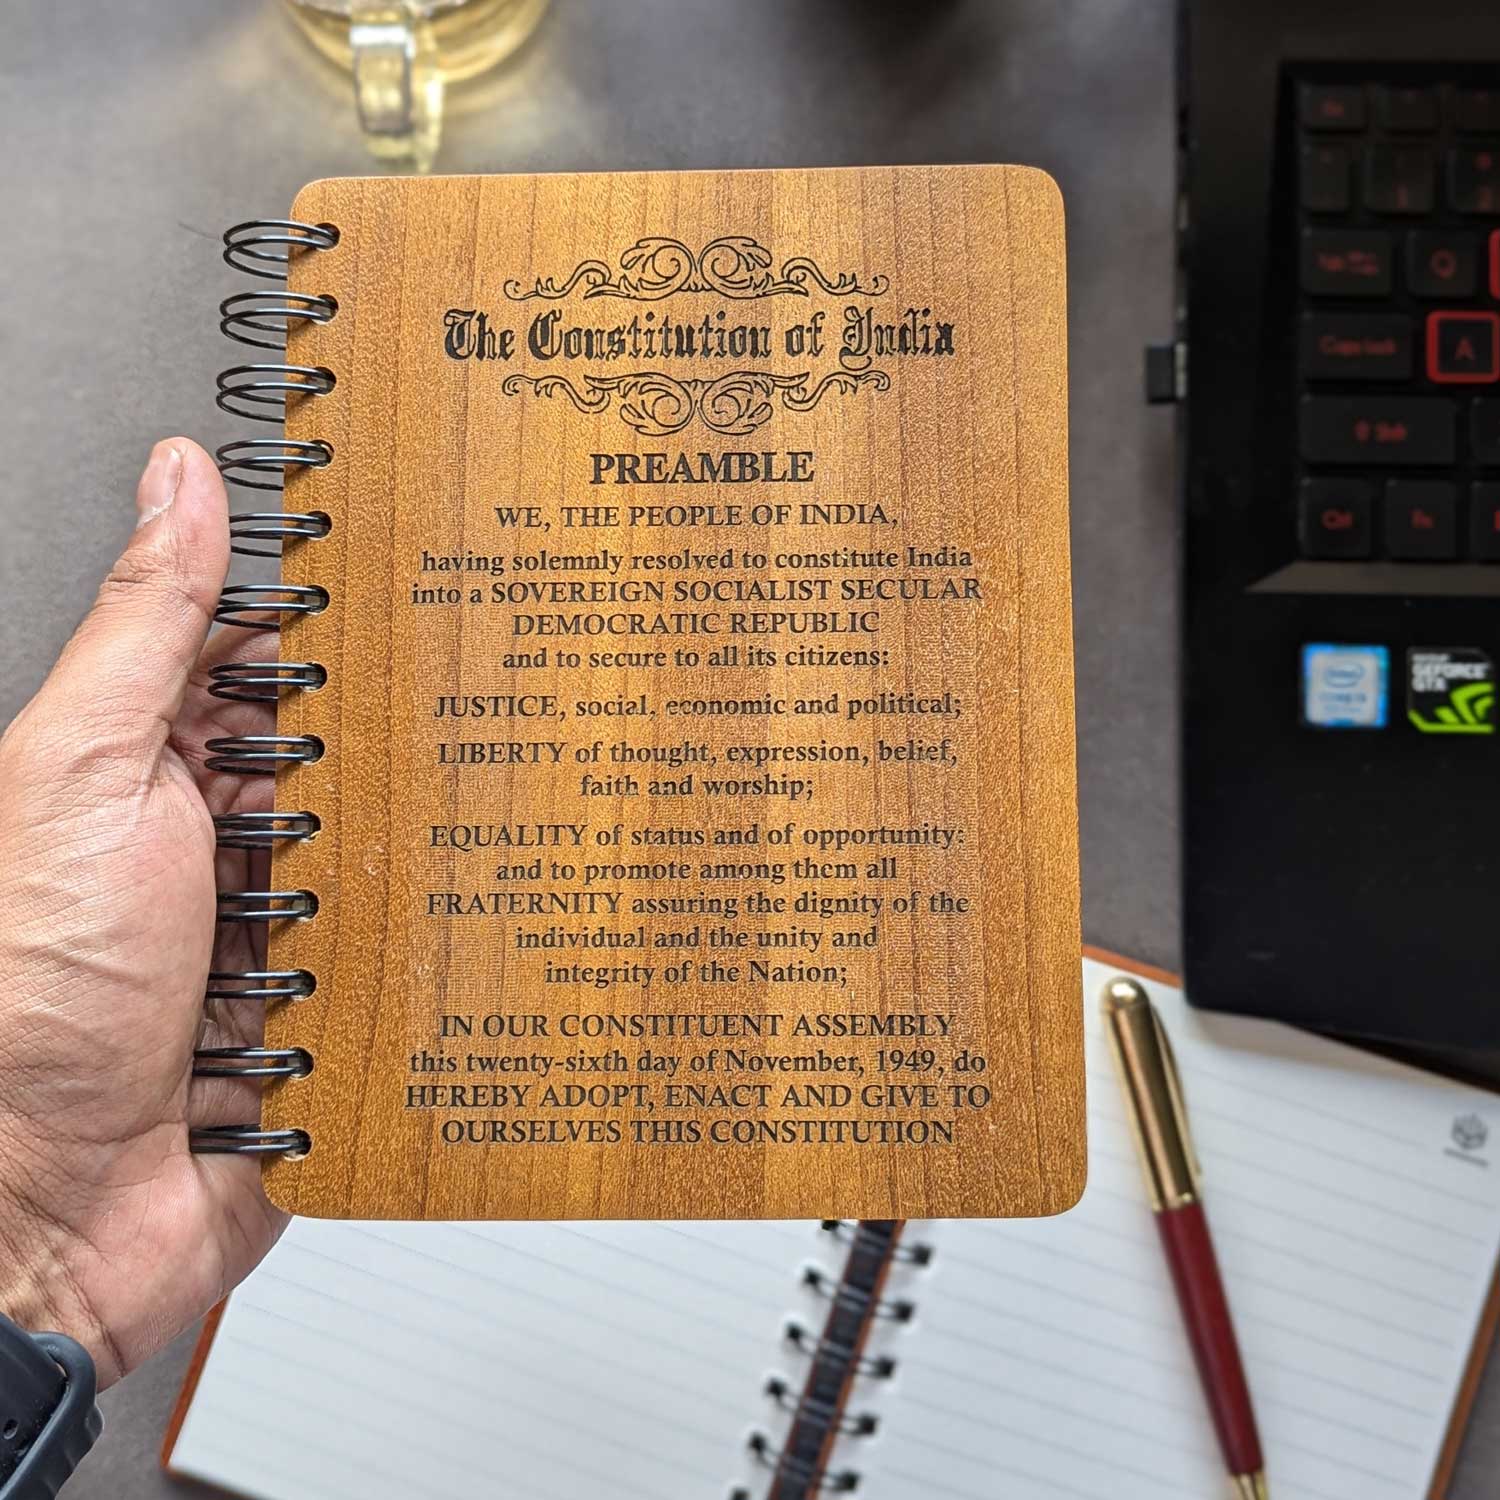 The Constitution of India
PREAMBLE
WE, THE PEOPLE OF INDIA,
having solemnly resolved to constitute India
into a SOVEREIGN SOCIALIST SECULAR
DEMOCRATIC REPUBLIC
and to secure to all its citizens:
JUSTICE, social, economic and political;
LIBERTY of thought, expression, belief,
faith and worship;
EQUALITY of status and of opportunity:
and to promote among them all
FRATERNITY assuring the dignity of the
individual and the unity and
integrity of the Nation;
IN OUR CONSTITUENT ASSEMBLY
this twenty-sixth day of November, 1949, do
HEREBY ADOPT, ENACT AND GIVE TO
OURSELVES THIS CONSTITUTION
Esc
1
2
Tab
Q
Caps Lock
A
Shift
Ctrl
Fn
intel
GEFORCE
GTX